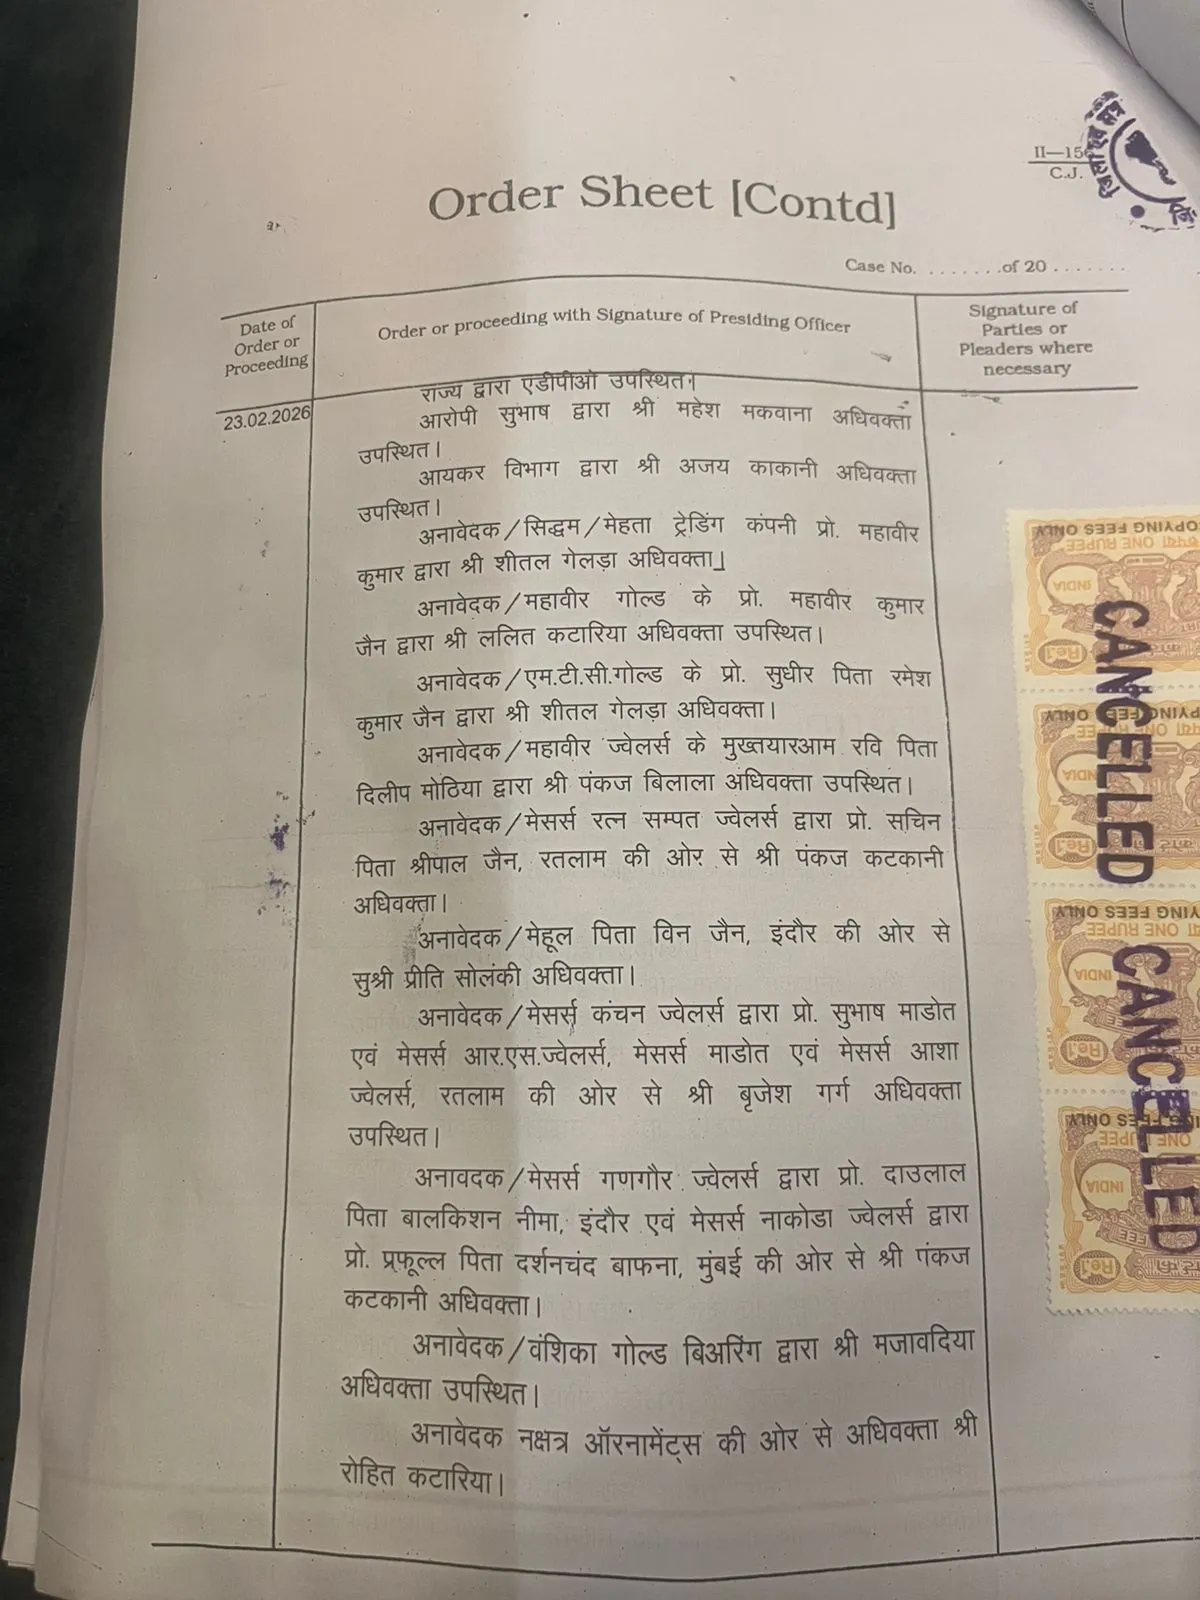 II—15
C.J.
जिला एवं सत्र
Order Sheet [Contd]
Case No. ........of 20.......
Date of
Order or
Proceeding
Order or proceeding with Signature of Presiding Officer
Signature of
Parties or
Pleaders where
necessary
23.02.2026
राज्य द्वारा एडीपीओ उपस्थित।
आरोपी सुभाष द्वारा श्री महेश मकवाना अधिवक्ता
उपस्थित।
आयकर विभाग द्वारा श्री अजय काकानी अधिवक्ता
उपस्थित।
अनावेदक/सिद्धम/मेहता ट्रेडिंग कंपनी प्रो. महावीर
कुमार द्वारा श्री शीतल गेलड़ा अधिवक्ता।
अनावेदक/महावीर गोल्ड के प्रो. महावीर कुमार
जैन द्वारा श्री ललित कटारिया अधिवक्ता उपस्थित।
अनावेदक/एम.टी.सी.गोल्ड के प्रो. सुधीर पिता रमेश
कुमार जैन द्वारा श्री शीतल गेलड़ा अधिवक्ता।
अनावेदक/महावीर ज्वेलर्स के मुख्तयारआम रवि पिता
दिलीप मोठिया द्वारा श्री पंकज बिलाला अधिवक्ता उपस्थित।
अनावेदक/मेसर्स रत्न सम्पत ज्वेलर्स द्वारा प्रो. सचिन
पिता श्रीपाल जैन, रतलाम की ओर से श्री पंकज कटकानी
अधिवक्ता।
अनावेदक/मेहूल पिता विन जैन, इंदौर की ओर से
सुश्री प्रीति सोलंकी अधिवक्ता।
अनावेदक/मेसर्स कंचन ज्वेलर्स द्वारा प्रो. सुभाष माडोत
एवं मेसर्स आर.एस.ज्वेलर्स, मेसर्स माडोत एवं मेसर्स आशा
ज्वेलर्स, रतलाम की ओर से श्री बृजेश गर्ग अधिवक्ता
उपस्थित।
अनावदक/मेसर्स गणगौर ज्वेलर्स द्वारा प्रो. दाउलाल
पिता बालकिशन नीमा, इंदौर एवं मेसर्स नाकोडा ज्वेलर्स द्वारा
प्रो. प्रफूल्ल पिता दर्शनचंद बाफना, मुंबई की ओर से श्री पंकज
कटकानी अधिवक्ता।
अनावेदक/वंशिका गोल्ड बिअरिंग द्वारा श्री मजावदिया
अधिवक्ता उपस्थित।
अनावेदक नक्षत्र ऑरनामेंट्स की ओर से अधिवक्ता श्री
रोहित कटारिया।
COPYING FEES ONLY
ONE RUPEE
INDIA
Re.1
CANCELLED
COPYING FEES ONLY
INDIA
Re.1
COPYING FEES ONLY
ONE RUPEE
INDIA
Re.1
CANCELLED
FEES ONLY
ONE RUPEE
INDIA
Re.1